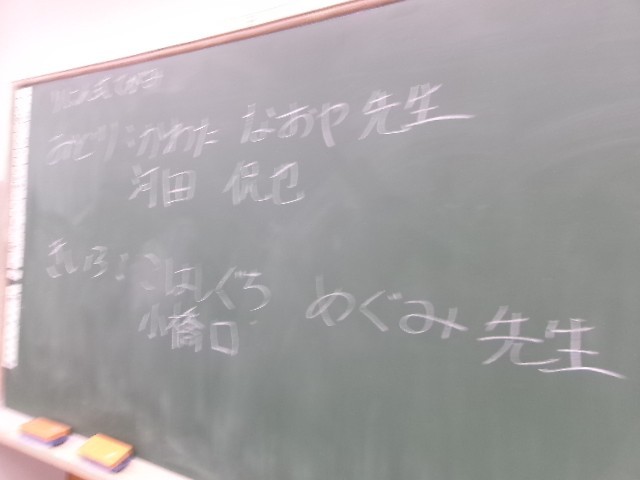 みどり：かわた なおや 先生
河田 侃也
きいろ： こはしぐち めぐみ 先生
小橋口